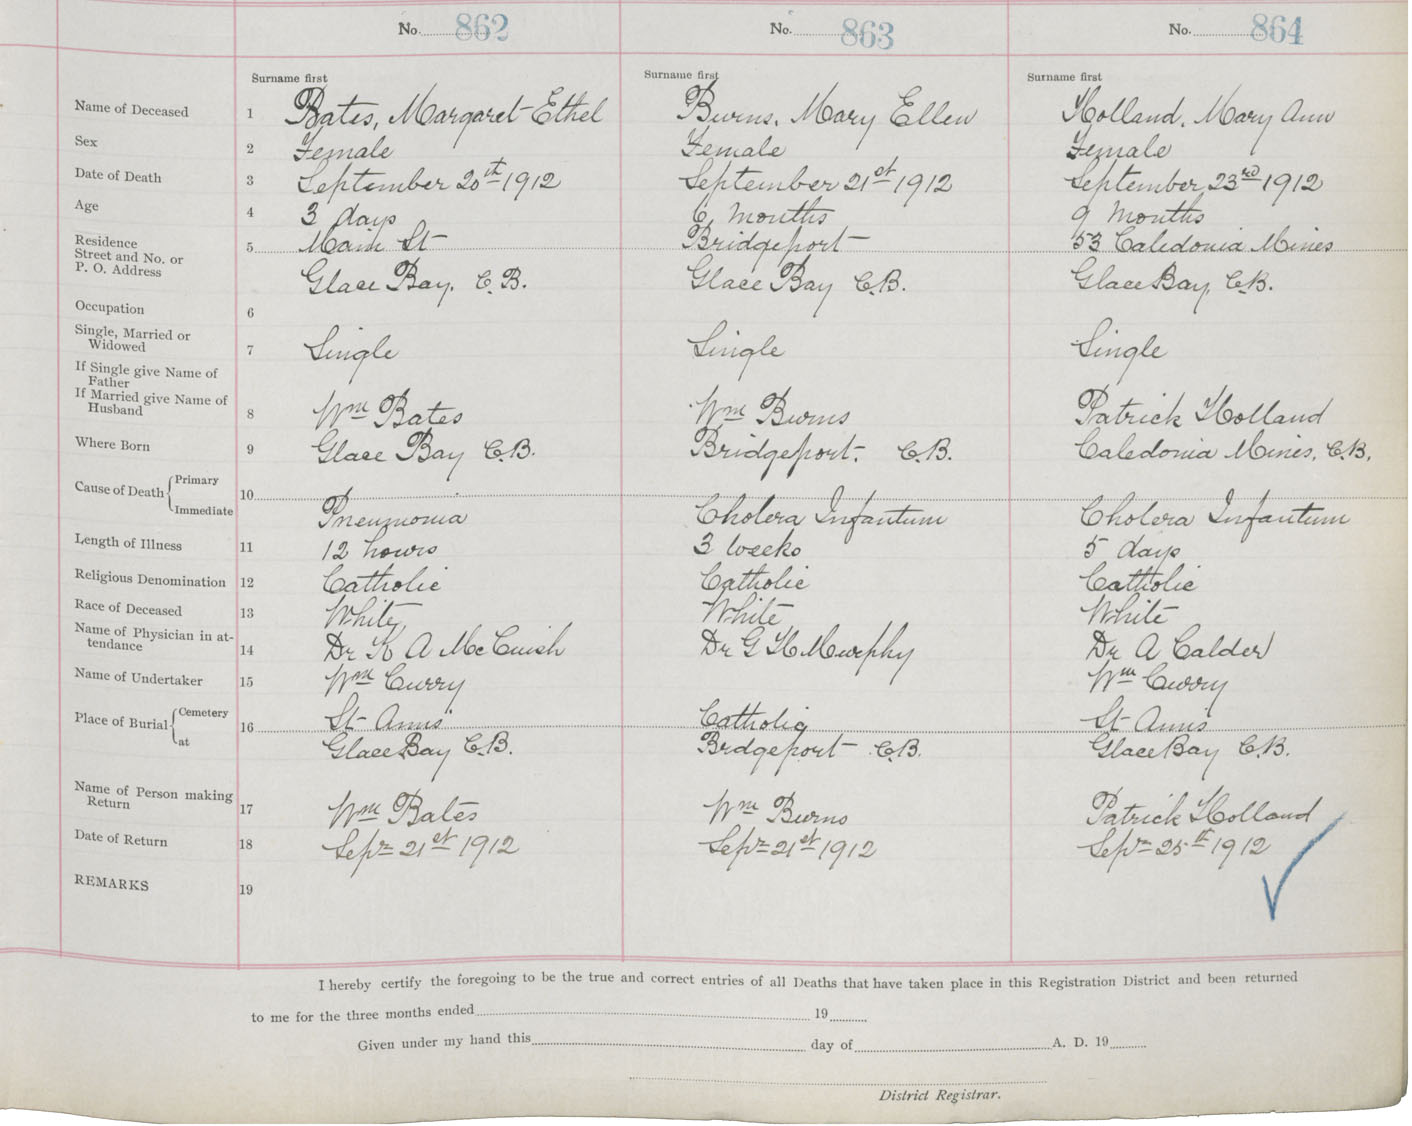 No. 862 No. 863 No. 864
Surname first Surname first Surname first
Name of Deceased 1 Bates, Margaret Ethel Burns, Mary Ellen Holland, Mary Ann
Sex 2 Female Female Female
Date of Death 3 September 20th 1912 September 21st 1912 September 23rd 1912
Age 4 3 days 6 months 9 months
Residence
Street and No. or 5 Main St Bridgeport 53 Caledonia Mines
P. O. Address Glace Bay, C.B. Glace Bay C.B. Glace Bay, C.B.
Occupation 6
Single, Married or
Widowed 7 Single Single Single
If Single give Name of
Father
If Married give Name of
Husband 8 Wm Bates Wm Burns Patrick Holland
Where Born 9 Glace Bay C.B. Bridgeport. C.B. Caledonia Mines, C.B.
Cause of Death Primary 10
Immediate Pneumonia Cholera Infantum Cholera Infantum
Length of Illness 11 12 hours 3 weeks 5 days
Religious Denomination 12 Catholic Catholic Catholic
Race of Deceased 13 White White White
Name of Physician in at-
tendance 14 Dr K A McCuish Dr G H Murphy Dr A Calder
Name of Undertaker 15 Wm Curry Wm Curry
Place of Burial Cemetery 16 St Anns Catholic St Anns
at Glace Bay C.B. Brdgeport C.B. Glace Bay C.B.
Name of Person making
Return 17 Wm Bates Wm Burns Patrick Holland
Date of Return 18 Sepr 21st 1912 Sepr 21st 1912 Sepr 25th 1912
REMARKS 19
I hereby certify the foregoing to be the true and correct entries of all Deaths that have taken place in this Registration District and been returned
to me for the three months ended 19
Given under my hand this day of A. D. 19
District Registrar.